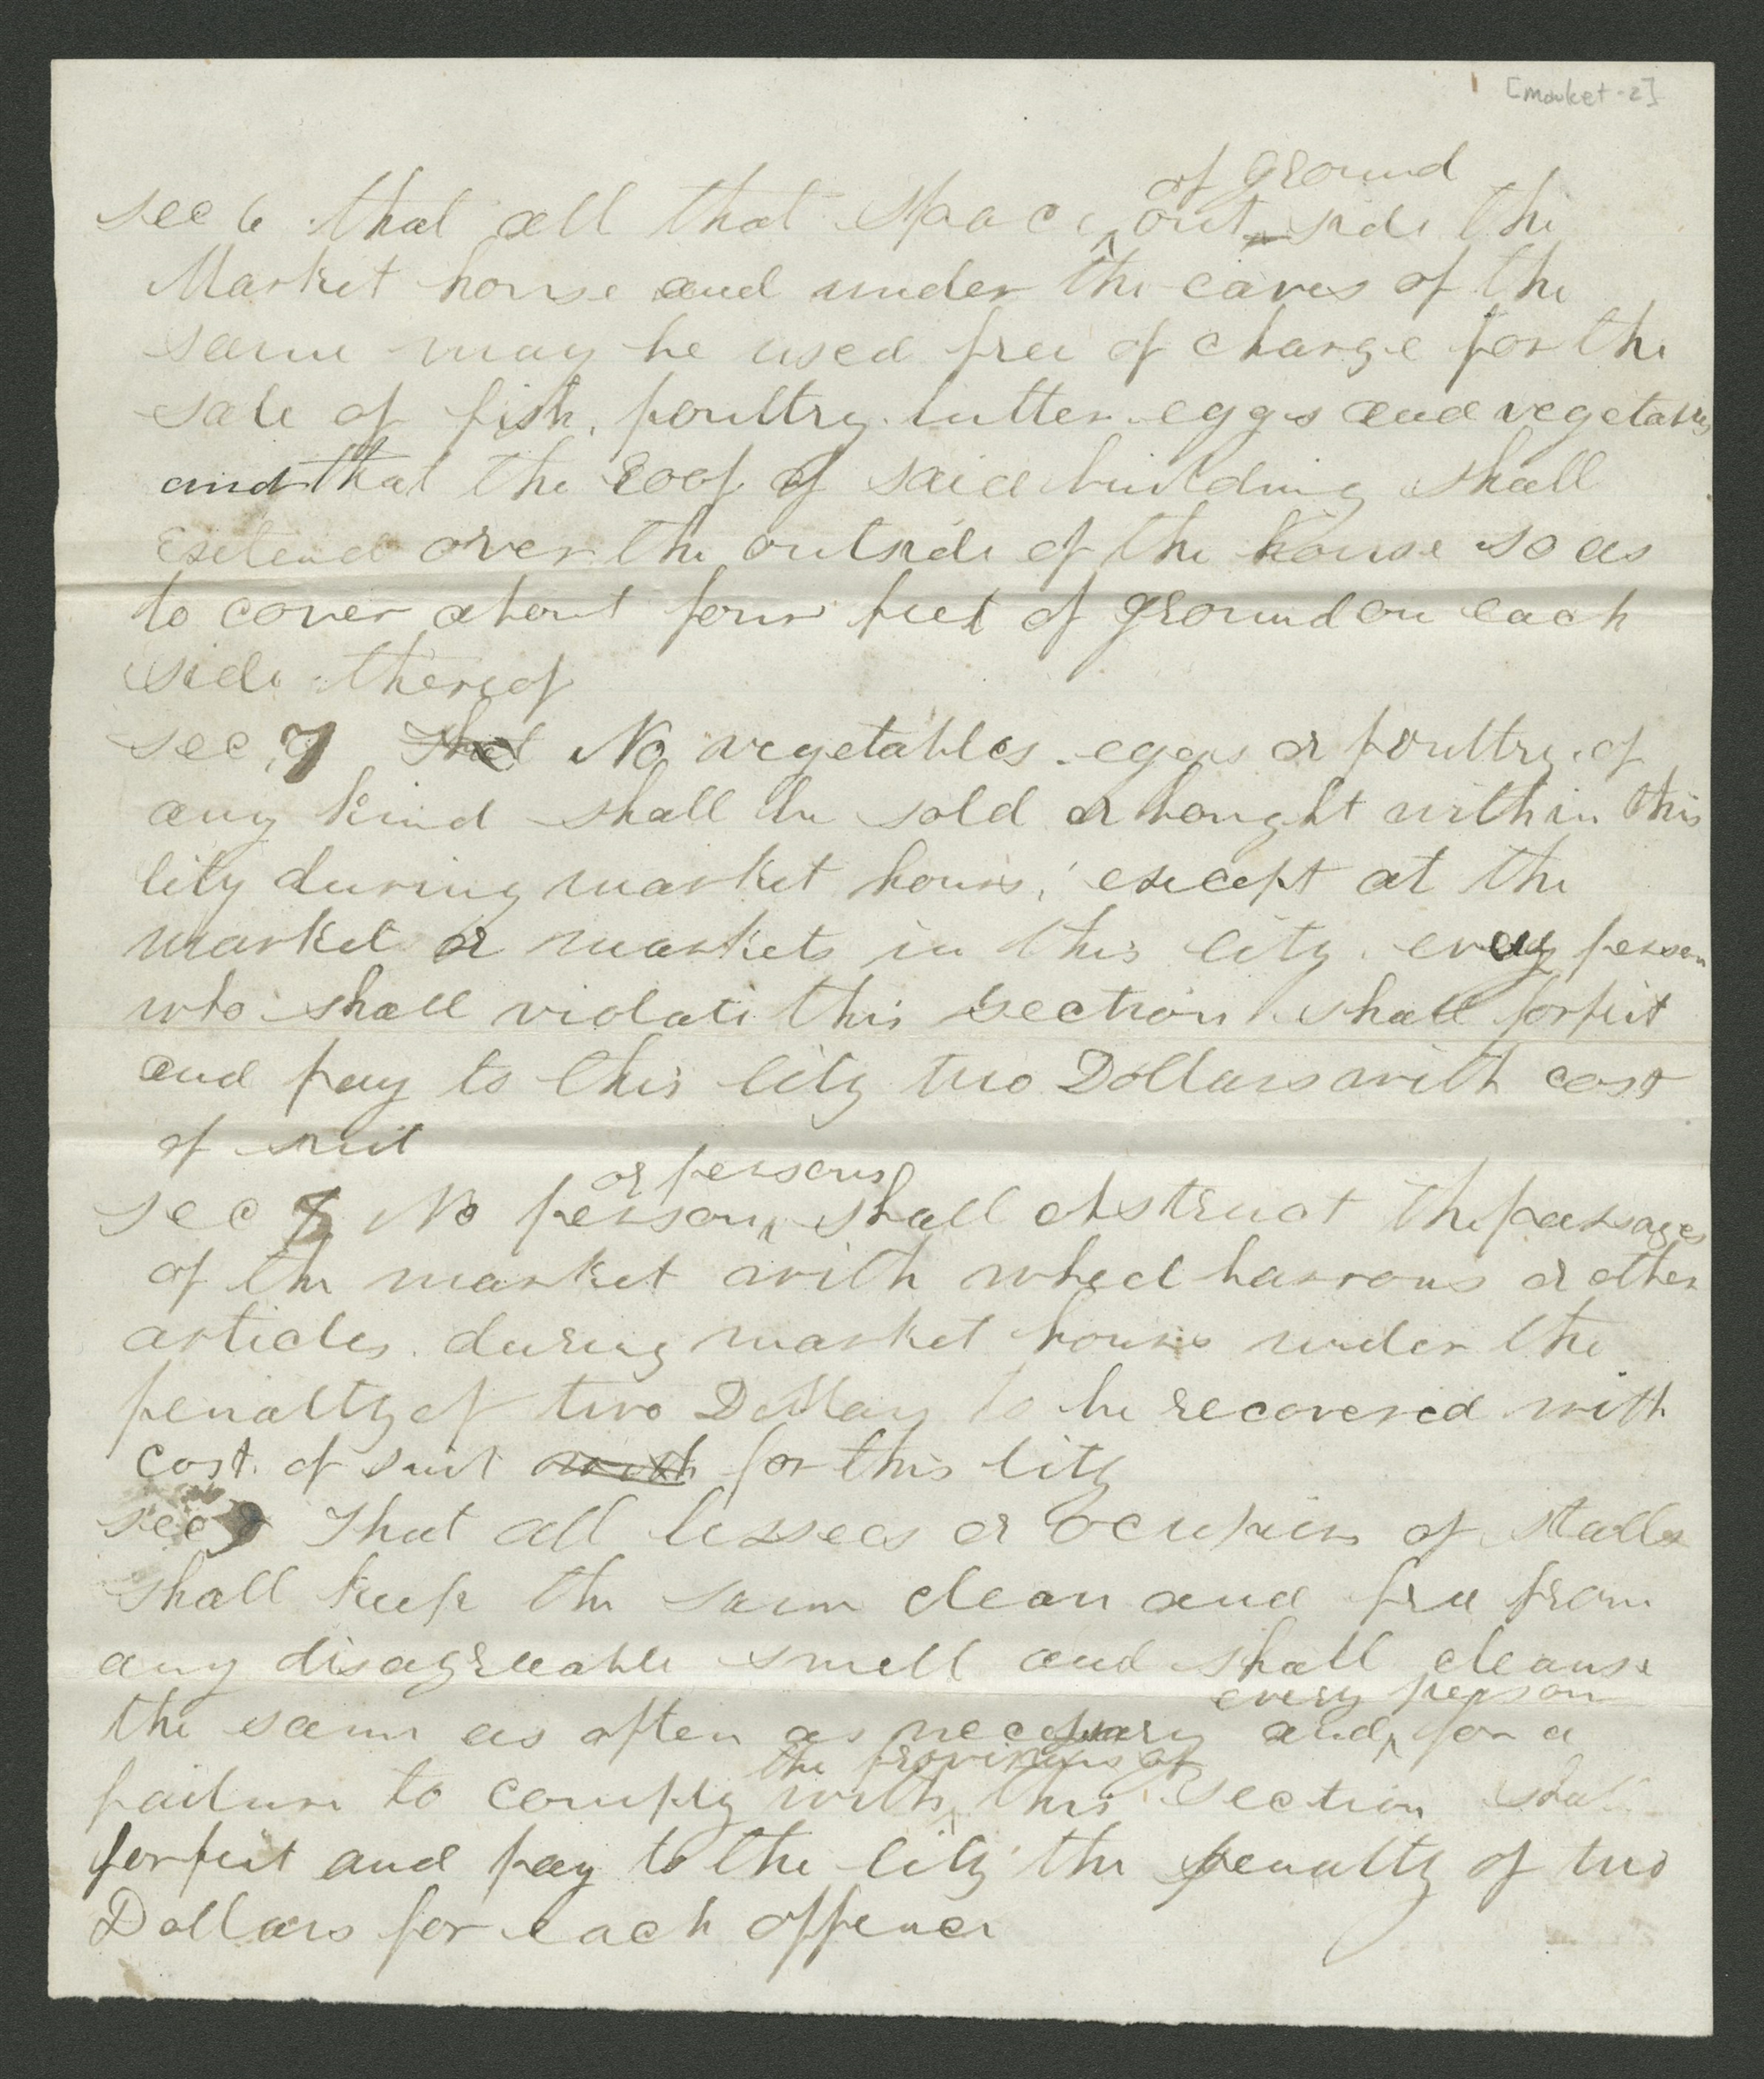 [market-2]
of ground
sec 6 that all that space out-side the
Market house and under the eaves of the
same may be used free of charge for the
sale of fish, poultry. butter. eggs and vegetables
and that the roof of said building shall
extend over the outside of the house so as
to cover about four feet of ground on each
side thereof
sec 7 That No vegetables. eggs or poultry. of
any kind shall be sold or bought within this
City during market hours, except at the
market or markets in this City. every person
who shall violate this section shall forfeit
and pay to this City two Dollars with cost
of suit
or persons
sec 8 No person shall obstruct the passages
of the market with wheel barrows or other
articles. during market hours under the
penalty of two Dollars to be recovered with
cost. of suit for this City
sec 9 That all lessees or ocupiers of stalls
shall keep the same clean and free from
any disagreeable smell and shall cleanse
every person
the same as often as necessary and for a
the provisions of
failure to comply with this section shall
forfeit and pay to the City the penalty of two
Dollars for each offence